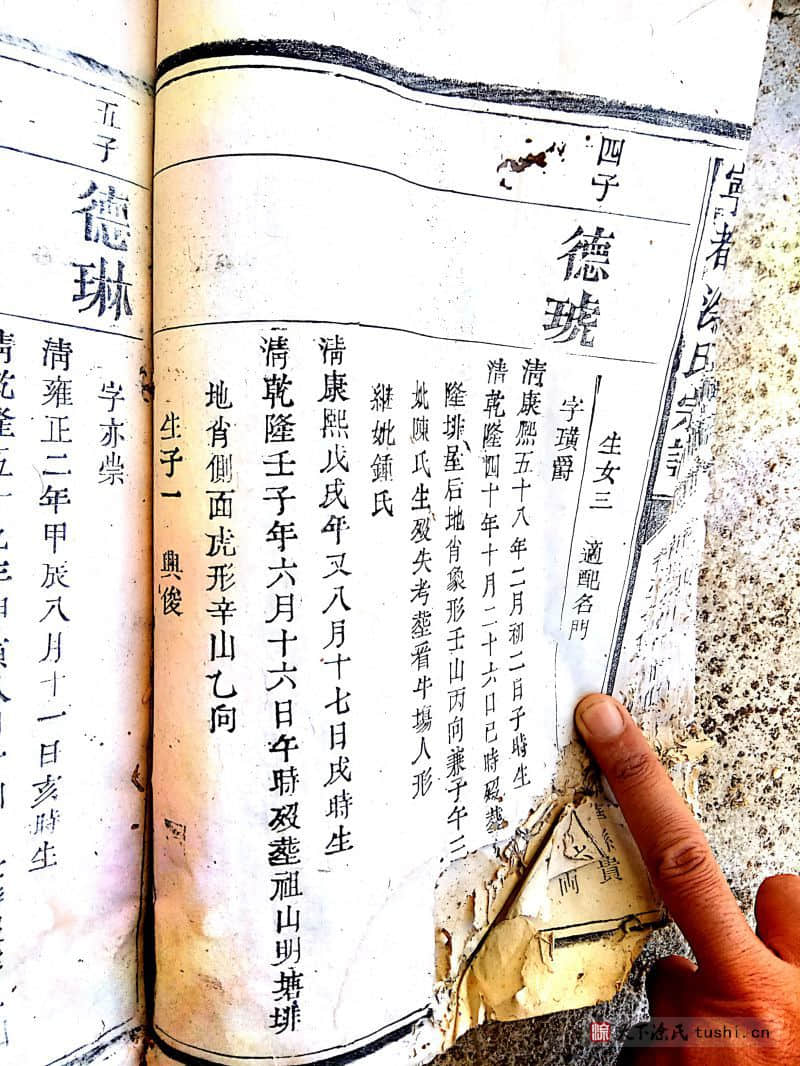 寧都涂氏宗譜
生女三 適配名門
四子
德琥
字璜爵
清康熙五十八年二月初二日子時生
清乾隆四十年十月二十六日巳時殁塟
隆排屋后地肖象形壬山丙向兼子午三
妣陳氏生殁失考塟看牛塲人形
継妣鍾氏
清康熙戊戌年又八月十七日戌時生
清乾隆壬子年六月十六日午時殁塟祖山明塘排
地肖側面虎形辛山乙向
生子一 興俊
五子
德琳
字亦崇
清雍正二年甲辰八月十一日亥時生
清乾隆五十九年
貴
両
天下涂氏 tushi.cn